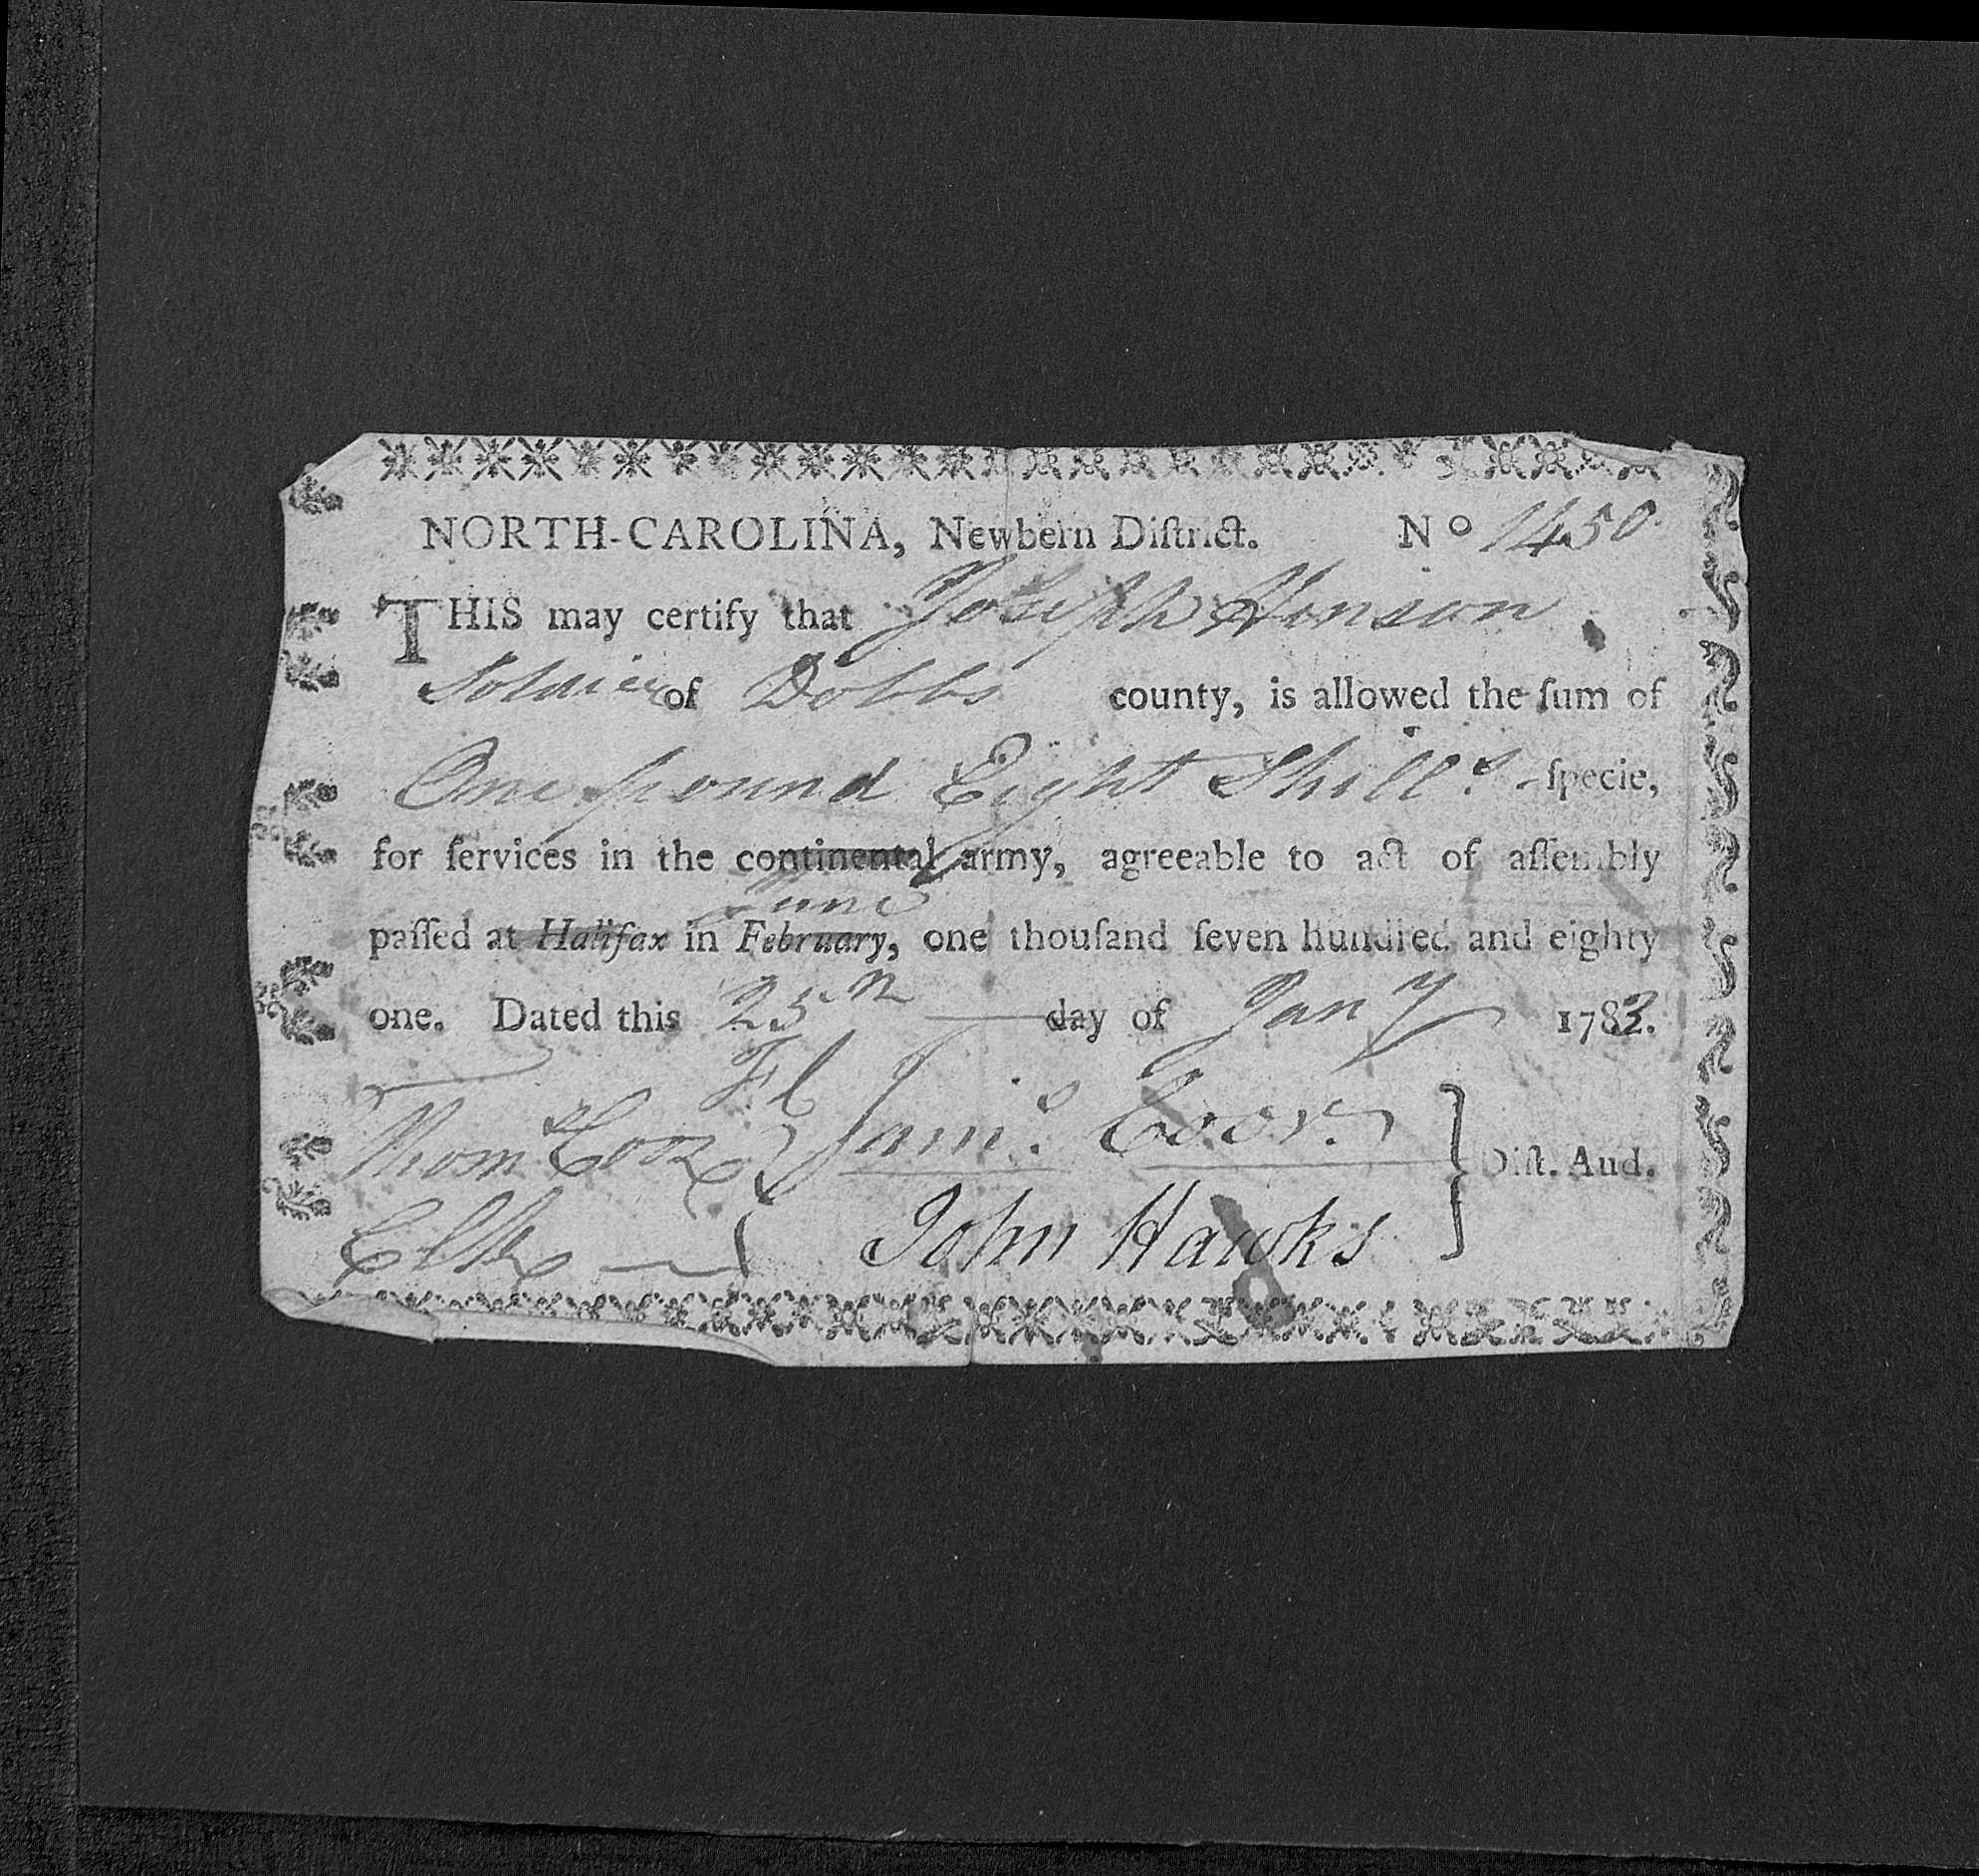 NORTH-CAROLINA, Newbern Diſtrict. No 1450
THIS may certify that Joseph Hinson
Soldier of Dobbs county, is allowed the ſum of
One pound Eight Shills specie,
for ſervices in the continental army, agreeable to act of aſſembly
June
paſſed at Halifax in February, one thouſand ſeven hundred and eighty
one. Dated this 25th day of Jany 1783.
Jams Coor
Diſt. Aud.
Clk John Hawks